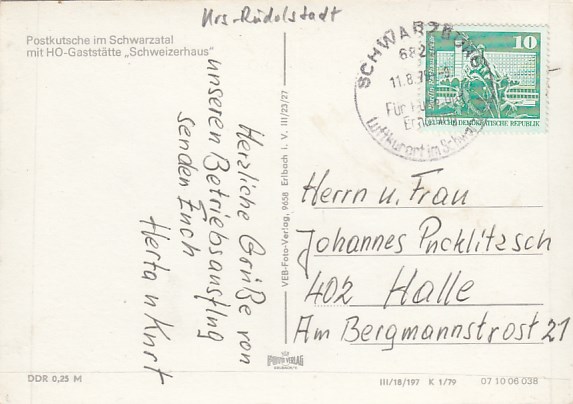 Krs-Rudolstadt
Postkutsche im Schwarzatal
mit HO-Gaststätte „Schweizerhaus"
Herzliche Grüße von
unseren Betriebsausflug
senden Euch
Herta u Kurt
VEB-Foto-Verlag, 9658 Erlbach i. V. III/23/27
SCHWARZBURG
11.8.
Für
Luftkurort im
10
DEUTSCHE DEMOKRATISCHE REPUBLIK
Herrn u. Frau
Johannes Pucklitzsch
402 Halle
Am Bergmannstrost 21
FOTO-VERLAG
DDR 0,25 M
III/18/197 K 1/79 07 10 06 038